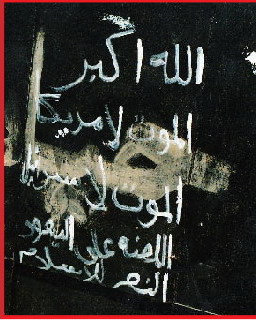 الله اكبر
الموت لامريكا
الموت لاسرائيل
اللعنه على اليهود
النصر للاسلام